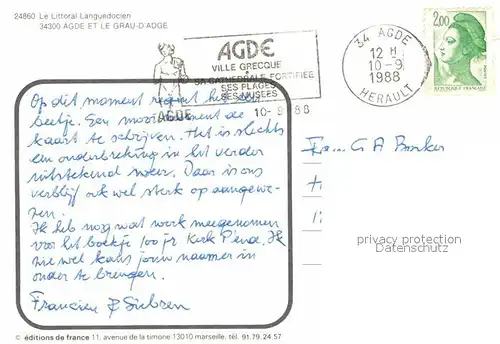 24860 Le Littoral Languedocien
34300 AGDE ET LE GRAU-D'ADGE
AGDE
AGDE
VILLE GRECQUE
SA CATHEDRALE FORTIFIEE
SES PLAGES
SES MUSEES
10-9-88
34 AGDE
12 H
10-9
1988
HERAULT
2,00
REPUBLIQUE FRANCAISE
Op dit moment regent het een
beetje. Een mooi moment de
kaart te schrijven. Het is slechts
een onderbreking in het verder
uitstekend weer. Daar is ons
verblijf ook wel sterk op aangewe-
zen.
Ik heb nog wat werk meegenomen
voor het boekje 100 jr Kerk. Ik
zie wel kans jouw naam er in
onder te brengen.
Francien & Siebren
Fam. G A Barker
privacy protection
Datenschutz
© éditions de france 11, avenue de la timone 13010 marseille, tél. 91.79.24.57